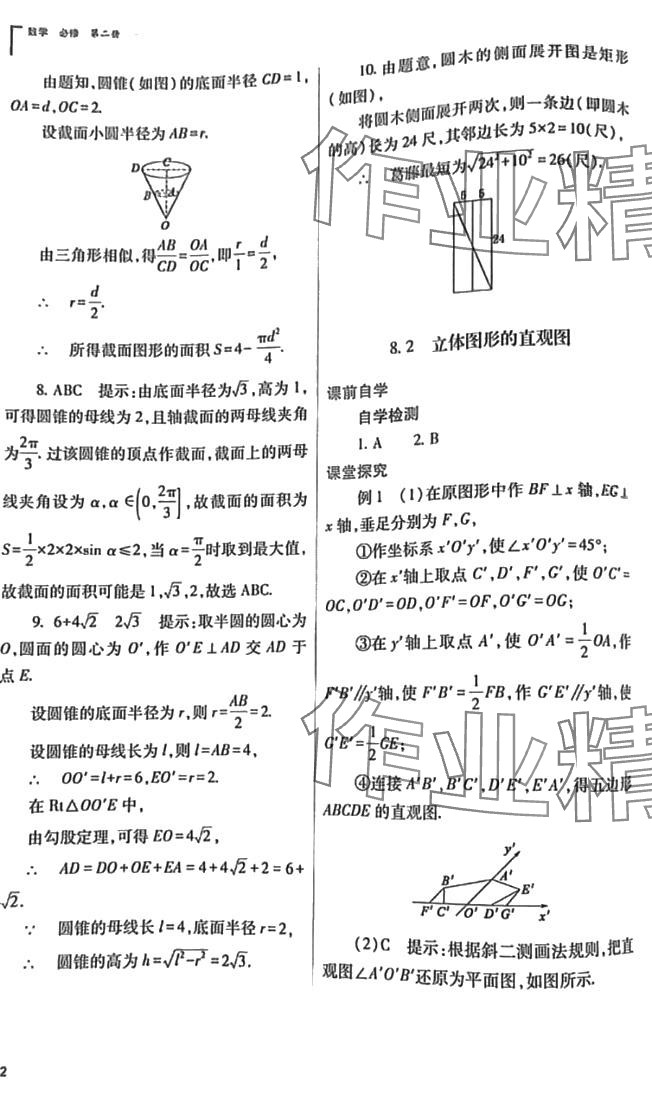 数学 必修 第二册
由题知,圆锥(如图)的底面半径CD=1,
OA=d,OC=2.
设截面小圆半径为AB=r.
D C
B A
O
由三角形相似,得AB/CD=OA/OC,即r/1=d/2,
∴ r=d/2.
∴ 所得截面图形的面积S=4-πd²/4.
8. ABC 提示:由底面半径为√3,高为1,
可得圆锥的母线为2,且轴截面的两母线夹角
为2π/3.过该圆锥的顶点作截面,截面上的两母
线夹角设为α,α∈(0,2π/3],故截面的面积为
S=1/2×2×2×sin α≤2,当α=π/2时取到最大值,
故截面的面积可能是1,√3,2,故选ABC.
9. 6+4√2 2√3 提示:取半圆的圆心为
O,圆面的圆心为O′,作O′E⊥AD交AD于
点E.
设圆锥的底面半径为r,则r=AB/2=2.
设圆锥的母线长为l,则l=AB=4,
∴ OO′=l+r=6,EO′=r=2.
在Rt△OO′E中,
由勾股定理,可得EO=4√2,
∴ AD=DO+OE+EA=4+4√2+2=6+
√2.
∵ 圆锥的母线长l=4,底面半径r=2,
∴ 圆锥的高为h=√(l²-r²)=2√3.
2
10. 由题意,圆木的侧面展开图是矩形
(如图),
将圆木侧面展开两次,则一条边(即圆木
的高)长为24尺,其邻边长为5×2=10(尺),
∴ 葛藤最短为√(24²+10²)=26(尺).
5 5
24
8.2 立体图形的直观图
课前自学
自学检测
1. A 2. B
课堂探究
例1 (1)在原图形中作BF⊥x轴,EG⊥
x轴,垂足分别为F,G,
①作坐标系x′O′y′,使∠x′O′y′=45°;
②在x′轴上取点C′,D′,F′,G′,使O′C′=
OC,O′D′=OD,O′F′=OF,O′G′=OG;
③在y′轴上取点A′,使O′A′=1/2OA,作
F′B′∥y′轴,使F′B′=1/2FB,作G′E′∥y′轴,使
G′E′=1/2GE;
④连接A′B′,B′C′,D′E′,E′A′,得五边形
ABCDE的直观图.
y′
B′ A′ E′
F′ C′ O′ D′ G′ x′
(2)C 提示:根据斜二测画法规则,把直
观图∠A′O′B′还原为平面图,如图所示.
作业精
作业精